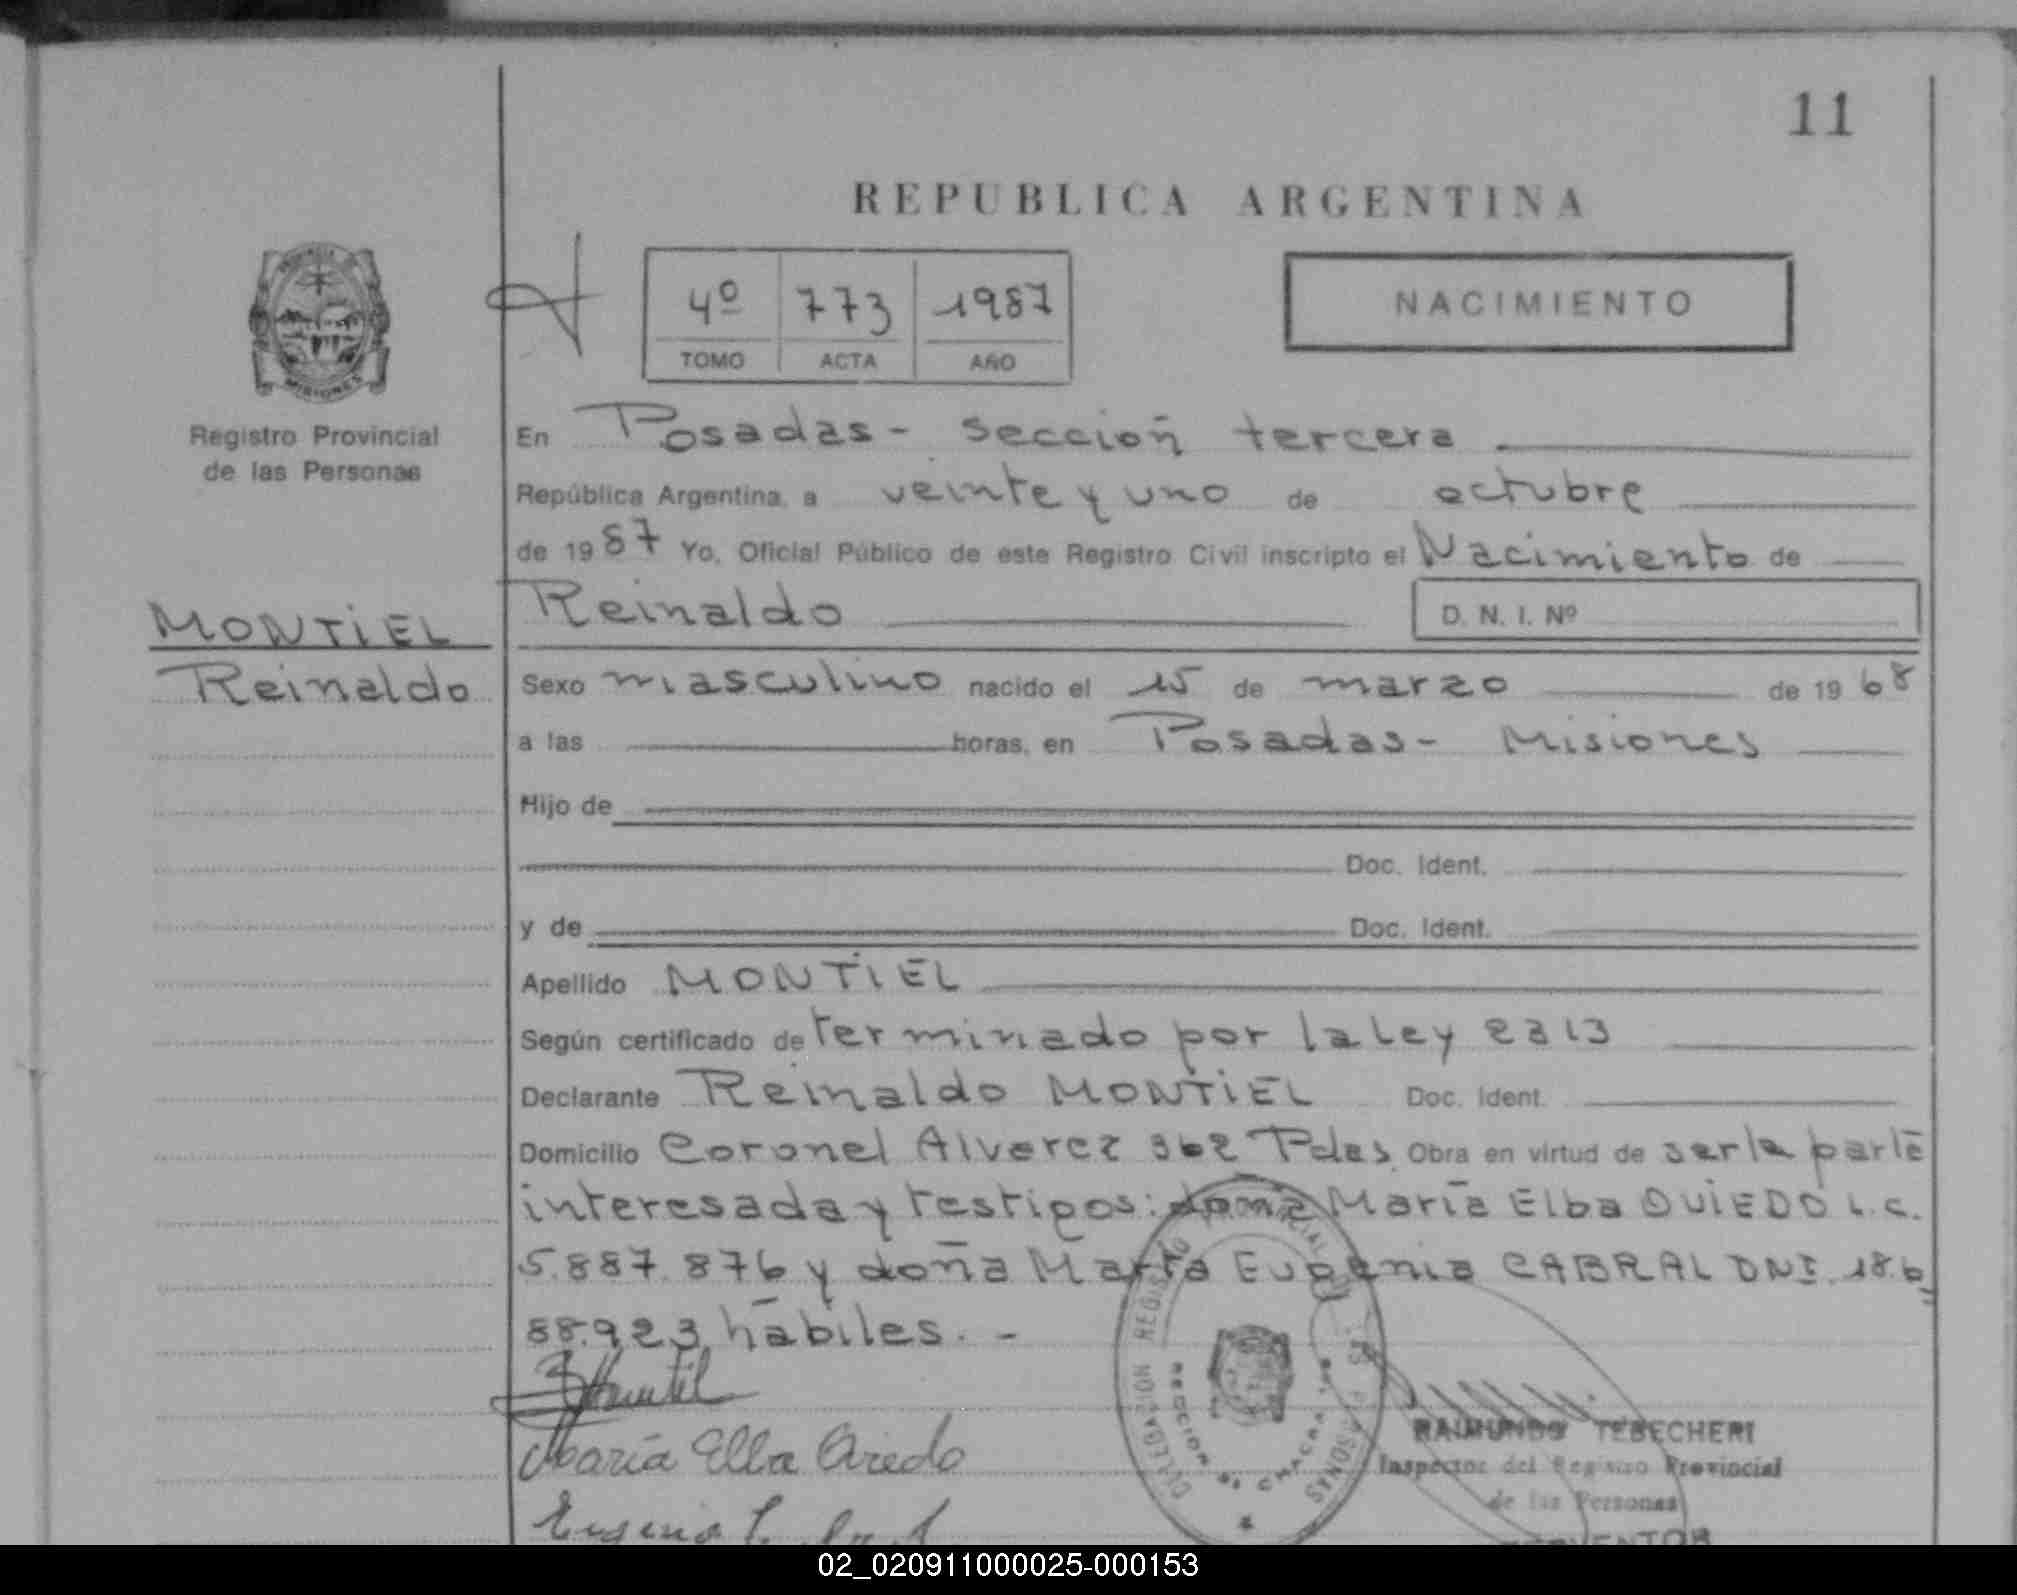 11
REPUBLICA ARGENTINA
4º 773 1987
TOMO ACTA AÑO
NACIMIENTO
MISIONES
Registro Provincial
de las Personas
En Posadas - Sección tercera
República Argentina, a veinte y uno de octubre
de 1987 Yo, Oficial Público de este Registro Civil inscripto el Nacimiento de
Reinaldo D. N. I. Nº
MONTIEL
Reinaldo
Sexo masculino nacido el 15 de marzo de 1968
a las horas, en Posadas - Misiones
Hijo de
Doc. Ident.
y de Doc. Ident.
Apellido MONTIEL
Según certificado de terminado por la Ley 2313
Declarante Reinaldo MONTIEL Doc. Ident.
Domicilio Coronel Alverez 362 Pdas. Obra en virtud de ser la parte
interesada y testigos: doña María Elba OVIEDO L.C.
5.887.876 y doña Marta Eugenia CABRAL DNI. 18.6
88.923 hábiles. -
María Elba Oviedo
Eugenia
DELEGACION REGISTRO PERSONAS
RAIMUNDO TEBECHERI
Inspector del Registro Provincial
de las Personas
02_020911000025-000153